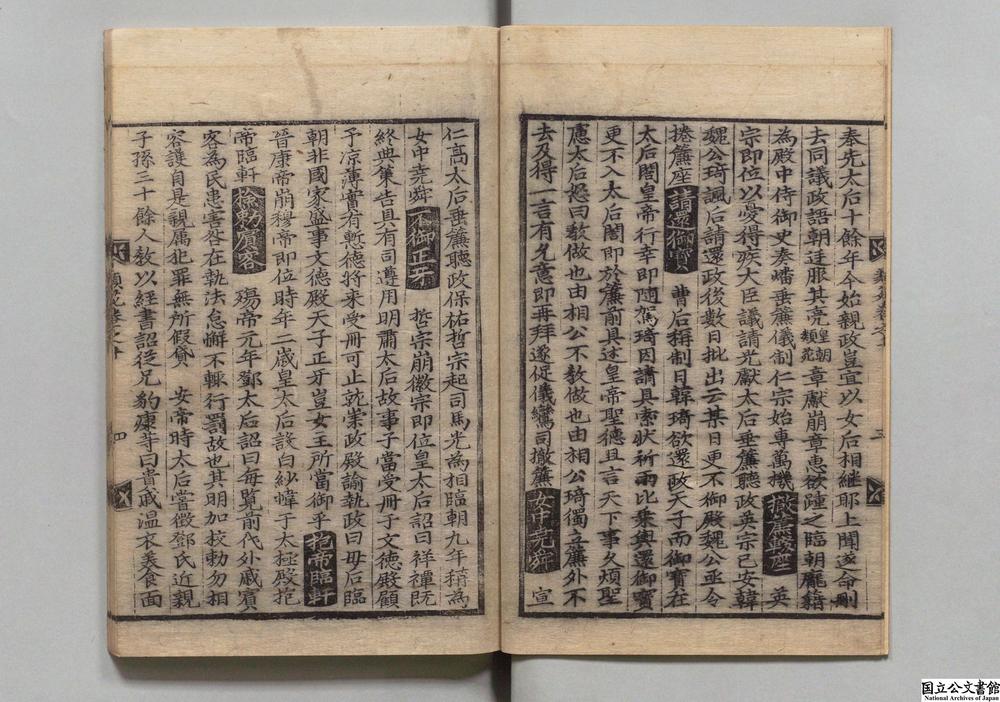 奉先太后十餘年今始親政豈宜以女后相繼耶上聞遂命刪
去同議政語朝廷服其亮皇朝類苑章獻崩章惠欲踵之臨朝龐籍
為殿中侍御史奏燔垂簾儀制仁宗始專萬機撤簾鞍座英
宗即位以憂得疾大臣議請光獻太后垂簾聽政英宗已安韓
魏公琦諷后請還政後數日批出云某日更不御殿魏公亟令
捲簾座請還御寶曹后稱制日韓琦欲還政天子而御寶在
太后閤皇帝行幸即隨駕琦因請具素狀祈雨比乗輿還御寶
更不入太后閤即於簾前具述皇帝聖德且言天下事久煩聖
慮太后怒曰敎做也由相公不敎做也由相公琦獨立簾外不
去及得一言有允意即再拜遂促儀鸞司撤簾女中堯舜宣
仁高太后垂簾聽政保祐哲宗起司馬光為相臨朝九年稱為
女中堯舜不御正牙哲宗崩徽宗即位皇太后詔曰祥禫既
終典策告具有司遵用明肅太后故事予當受冊于文德殿顧
予凉薄實有慙德將来受冊可止就崇政殿諭執政曰母后臨
朝非國家盛事文德殿天子正牙豈女主所當御乎抱帝臨軒
晉康帝崩穆帝即位時年二歲皇太后設白紗帷于太極殿抱
帝臨軒檢勅賓客殤帝元年鄧太后詔曰每覧前代外戚賓
客為民患害咎在執法怠懈不輙行罰故也其明加挍勅勿相
容護自是親属犯罪無所假貸安帝時太后嘗徵鄧氏近親
子孫三十餘人敎以經書詔從兄豹康等曰貴戚温衣羙食面
三
四
国立公文書館
National Archives of Japan